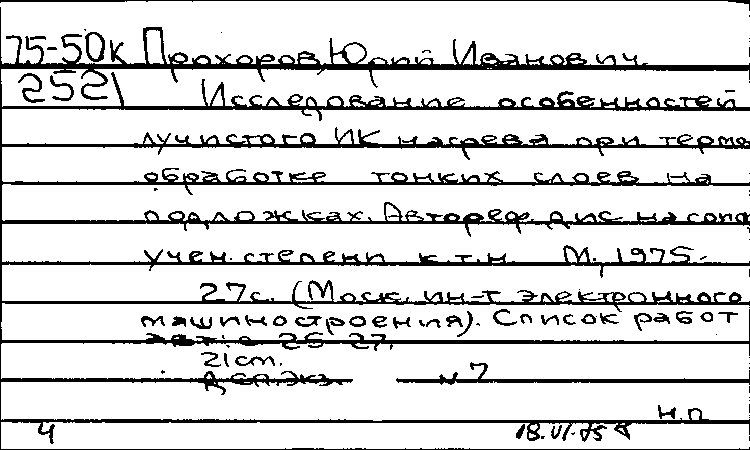 75-50к Прохоров, Юрий Иванович.
2521 Исследование особенностей
лучистого ИК нагрева при термо
обработке тонких слоев на
подложках. Автореф. дис. на соиск
учен. степени к.т.н. М., 1975.
27с. (Моск. ин-т электронного
машиностроения). Список работ
авт.: с 26-27.
21cm.
Деп. экз. N 7
Н.П
4 18.VI.75